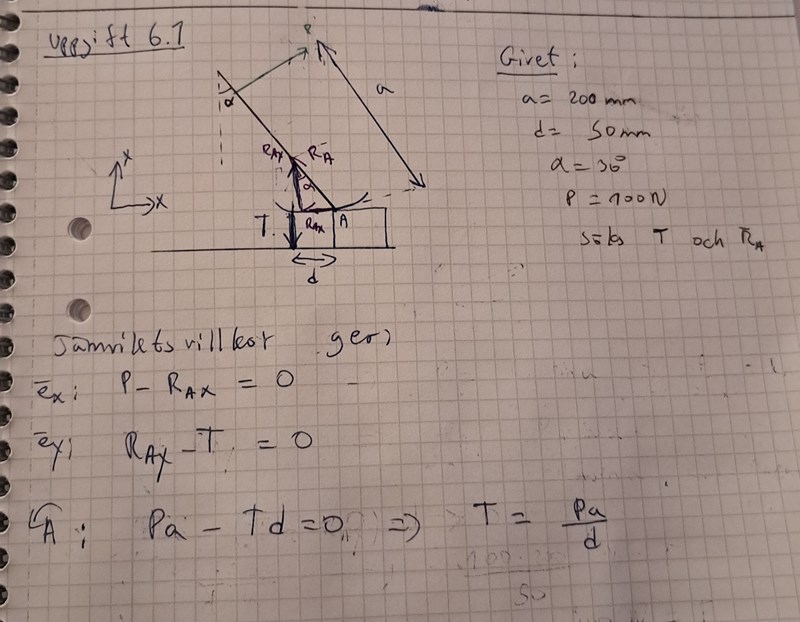 uppgift 6.1
P
α
a
Givet:
a = 200 mm
d = 50 mm
α = 30°
P = 100 N
söks T och R̄A
RAx
R̄A
α
x
x
T
RAx
A
d
Jämvikts villkor ger;
ēx; P - RAx = 0
ēy; RAy - T = 0
A; Pa - Td = 0 => T = Pa/d
50